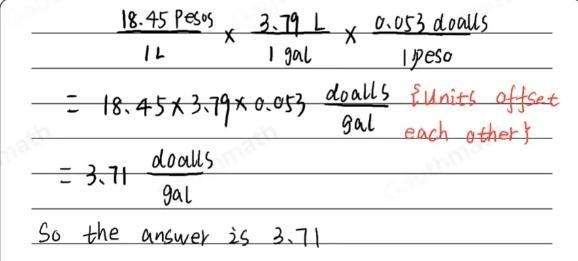 18.45 Pesos / 1L × 3.79 L / 1 gal × 0.053 doalls / 1 peso
= 18.45 × 3.79 × 0.053 doalls / gal {Units offset
each other}
= 3.71 doalls / gal
So the answer is 3.71